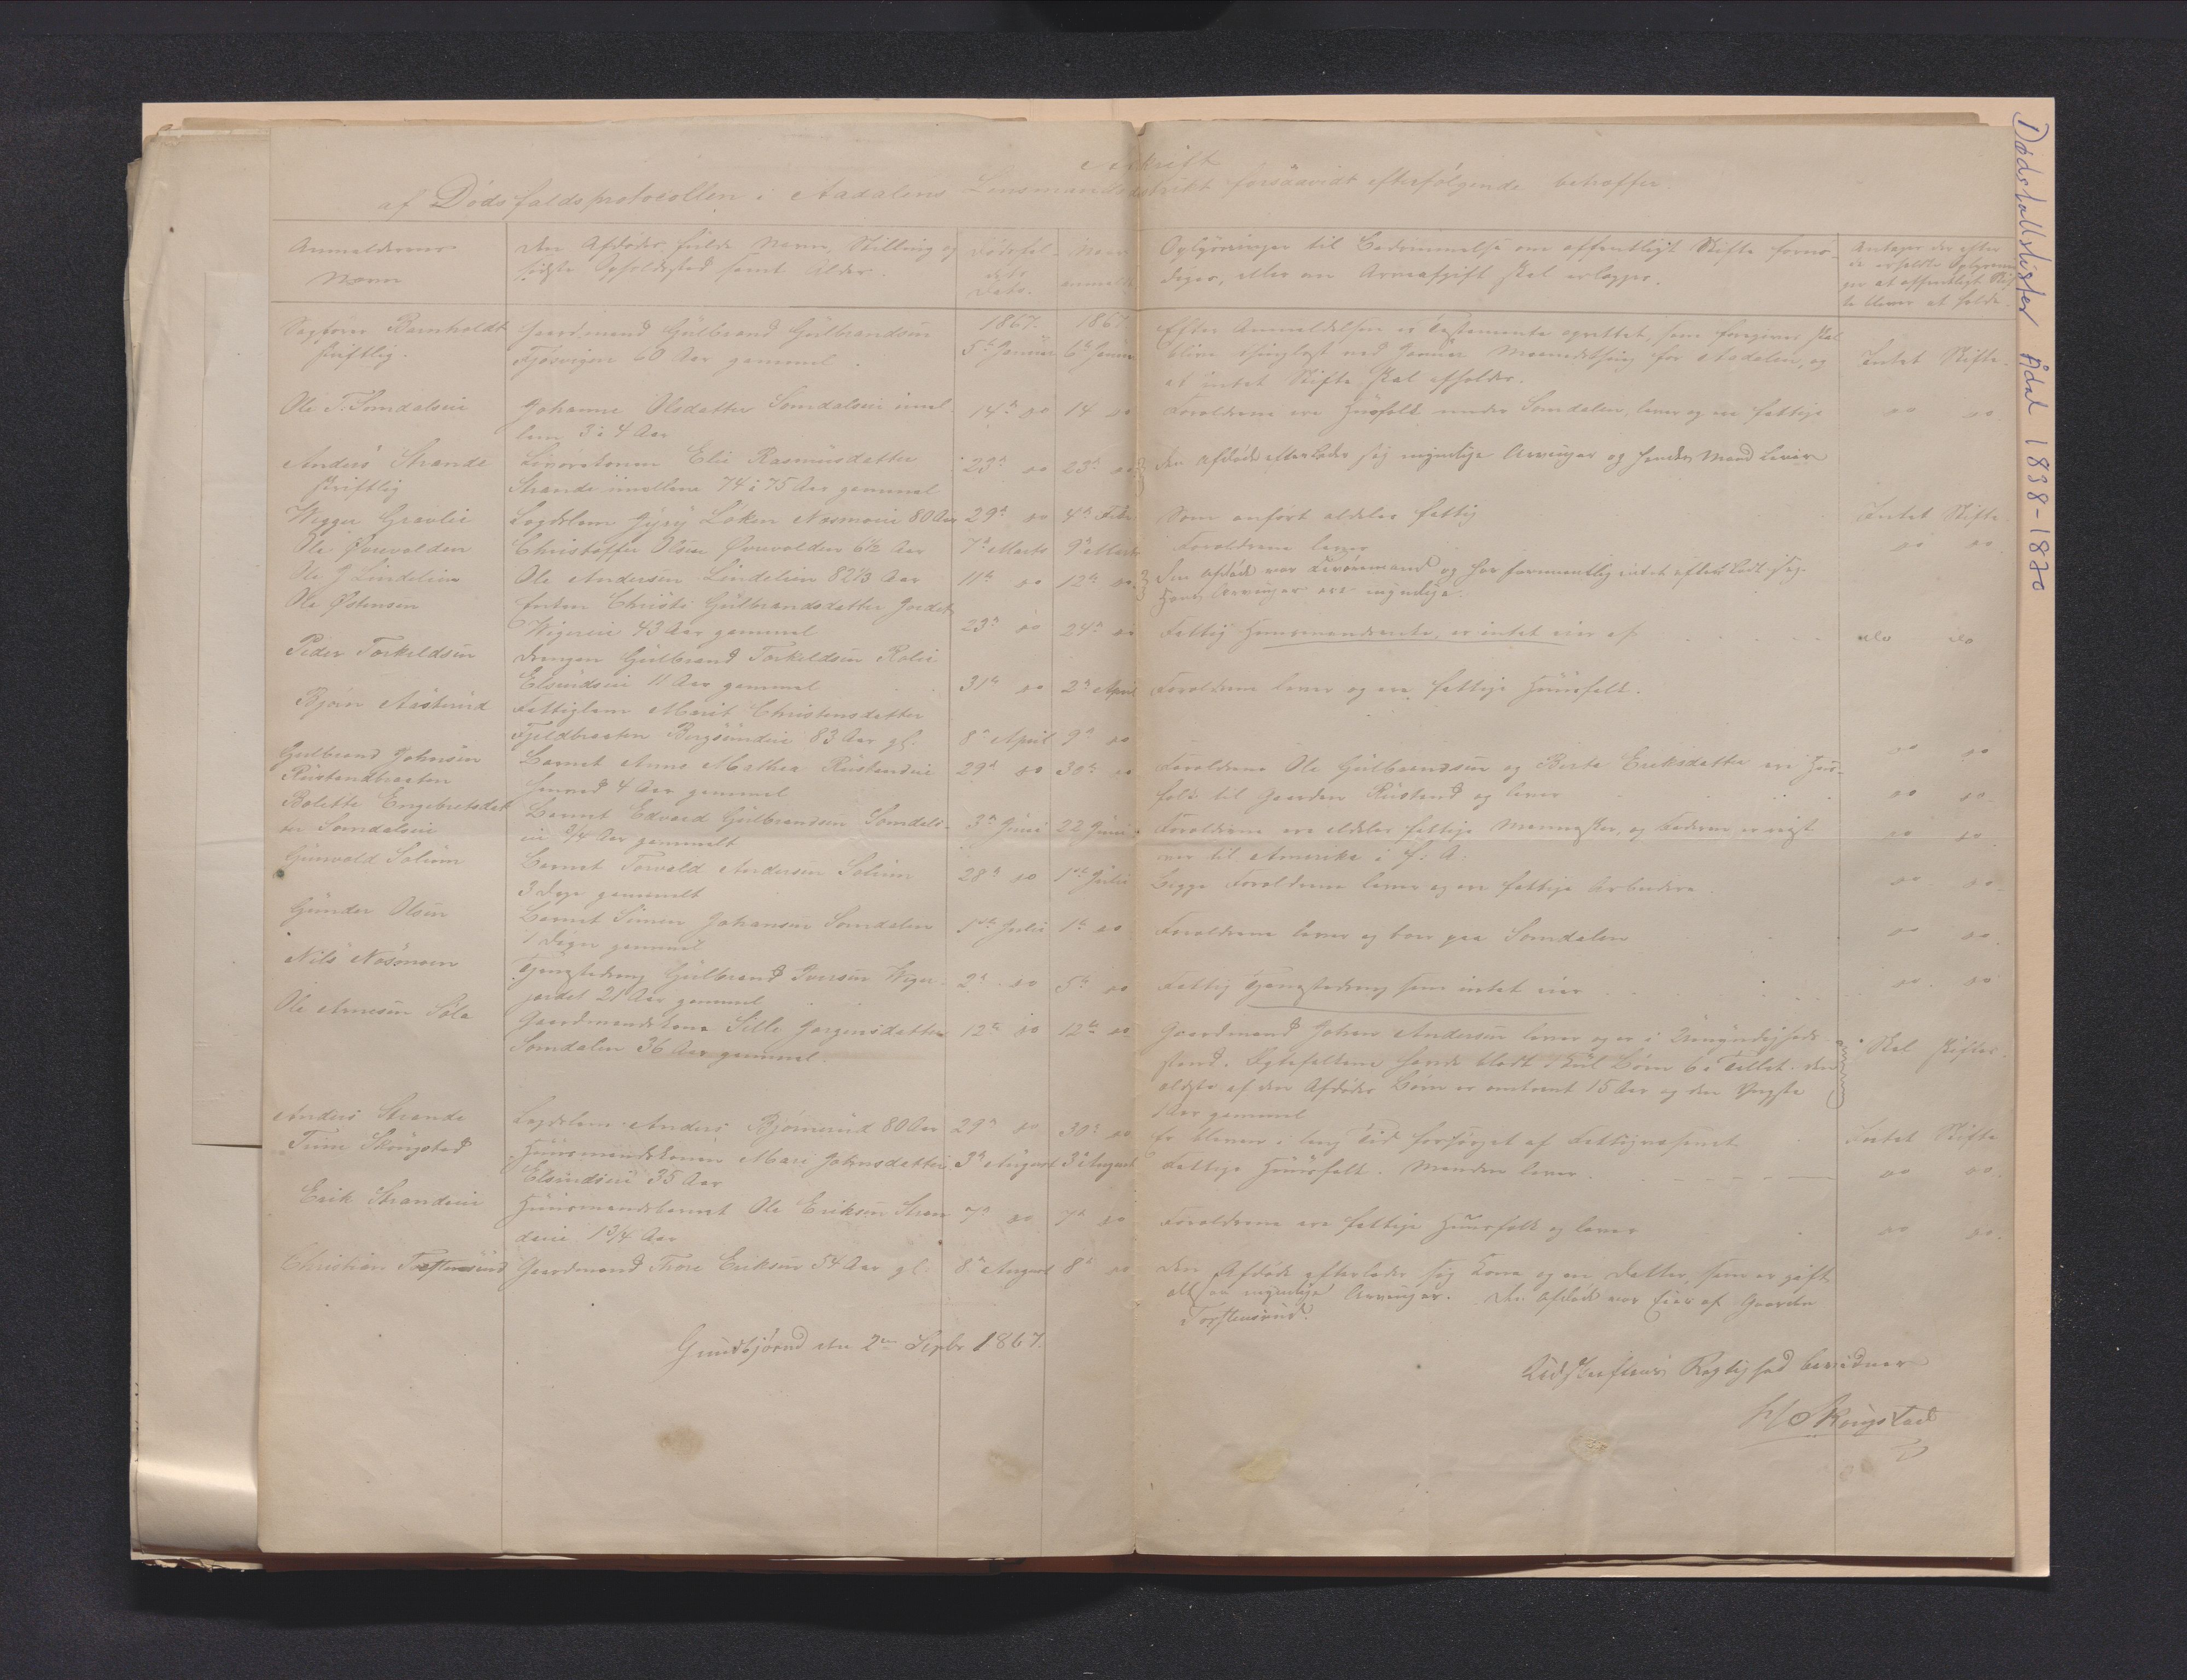 Afskrift
af Dødsfaldsprotocollen i Aadalens Lensmandsdistrikt forsaavidt efterfølgende betræffer.
Anmelderens
Navn
Den Afdødes fulde Navn, Stilling og
sidste Opholdssted samt Alder.
Dødsfal-
dets
Dato.
Naar
anmeldt
Oplysninger til Bedømmelse om offentligt Skifte fornø-
diges, eller om Arveafgift skal erlægges.
Antages der efter
de erholdte Oplysnin
ger at offentligt Skif
te bliver at holde.
1867. 1867
Sagfører Barnholdt
skriftlig.
Gaardmand Gulbrand Gulbrandsen
Fjøsvigen 60 Aar gammel.
5te Januar 6te Januar
Efter Anmeldelsen er Testamente oprettet, som foregives skal
blive thinglæst ved Januar Maanedsthing for Aadalen, og
at intet Skifte skal afholdes.
Intet Skifte.
Ole T. Somdalseie
Johanne Olsdatter Somdalseie imel-
lem 3 à 4 Aar
14de do 14 do
Forældrene ere Husfolk under Somdalen, lever og ere fattige
do do
Anders Strande
skriftlig
Livørekonen Eli Rasmusdatter
Strande imellem 74 à 75 Aar gammel
23de do 23de do
Den Afdøde efterlader sig myndige Arvinger og hendes Mand lever
Wigger Gravlie
Lægdslem Gyry Løken Næsmoeie 80 Aar
29de do 4de Febr
Som anført aldeles fattig
Intet Skifte.
Ole Øvrevolden
Christoffer Olsen Øvrevolden 6½ Aar
7de Marts 9de Marts
Forældrene lever
do do
Ole J Lindelien
Ole Andersen Lindelien 82⅓ Aar
11te do 12te do
Den Afdøde var Livøremand og har formentlig intet efterladt sig.
Hans Arvinger ere myndige.
Ole Østensen
Enken Christi Gulbrandsdatter Jordet
Wigereie 43 Aar gammel
23de do 24de do
Fattig Huusmandsenke, er intet eier af
do do
Peder Torkeldsen
Drengen Gulbrand Torkeldsen Kolie
Elsrudeie 11 Aar gammel
31te do 2de April
Forældrene lever og ere fattige Huusfolk.
Bjørn Aasterud
Fattiglem Marit Christensdatter
Fjeldbraaten Bergsundeie 83 Aar gl.
8de April 9de do
do do
Gulbrand Johnsen
Rustandbraaten
Barnet Anne Mathea Rustandeie
4 Aar gammel
29de do 30te do
Forældrene Ole Gulbrandsen og Berte Eriksdatter ere Hus-
folk til Gaarden Rustand og lever
do do
Bolette Engebretsdat
ter Somdalseie
Barnet Edvard Gulbrandsen Somdals-
eie ¾ Aar gammelt
3de Juni 22 Juni
Forældrene ere aldeles fattige Mennesker, og Faderen er reist
over til Amerika i f: A.
do do
Gunvald Solum
Barnet Torvald Andersen Solum
3 Dage gammelt
28de do 1ste Julie
Begge Forældrene lever og ere fattige Arbeidere
do do
Gunder Olsen
Barnet Simen Johansen Somdalen
1 Døgn gammel
1ste Julie 1te do
Forældrene lever og boer paa Somdalen
do do
Nils Næsmoen
Tjenestedreng Gulbrand Iversen Wiger-
jordet 21 Aar gammel
2de do 5te do
Fattig Tjenestedreng som intet eier
do do
Ole Arnesen Sole
Gaardmandskone Sille Jørgensdatter
Somdalen 36 Aar gammel.
12te do 12te do
Gaardmand Johan Andersen lever og er i Umyndigheds-
stand. Egtefolkene havde blodt Kuld Børn 6 i Tallet. Den
ældste af den Afdødes Børn er omtrent 15 Aar og den Yngste
1 Aar gammel
Skal skiftes.
Anders Strande
Lægdslem Anders Bjørnerud 80 Aar
29de do 30te do
Er bleven i lang Tid forsørget af Fattigvæsenet
Intet Skifte
Skougstad
Huusmandskonen Mari Johnsdatter
Elsrudeie 35 Aar
3de August 3de August
Fattige Huusfolk. Manden lever.
do do.
Erik Strandeie
Huusmandsbarnet Ole Eriksen Stran
deeie 1¾ Aar
7de do 7de do
Forældrene ere fattige Huusfolk og lever
do do.
Christian Torstensrud
Gaardmand Thore Eriksen 54 Aar gl.
8de August 8de do
Den Afdøde efterlader sig Kone og en Datter, som er gift
altsaa myndige Arvinger. Den Afdøde var Eier af Gaarden
Torstensrud.
den 2den Septbr 1867.
Udskriftens Rigtighed bevidner
Skougstad
Dødsfallslister Ådal 1838-1870